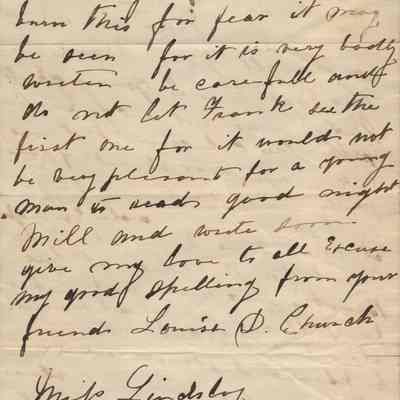 burn this for fear it may
be seen for it is very badly
writen be carefull and
do not let Frank see the
first one for it would not
be very plesant for a young
man to read good night
Mill and write soon
give my love to all Excuse
my good spelling from your
friend Louisa D. Church
Miss Lindsley